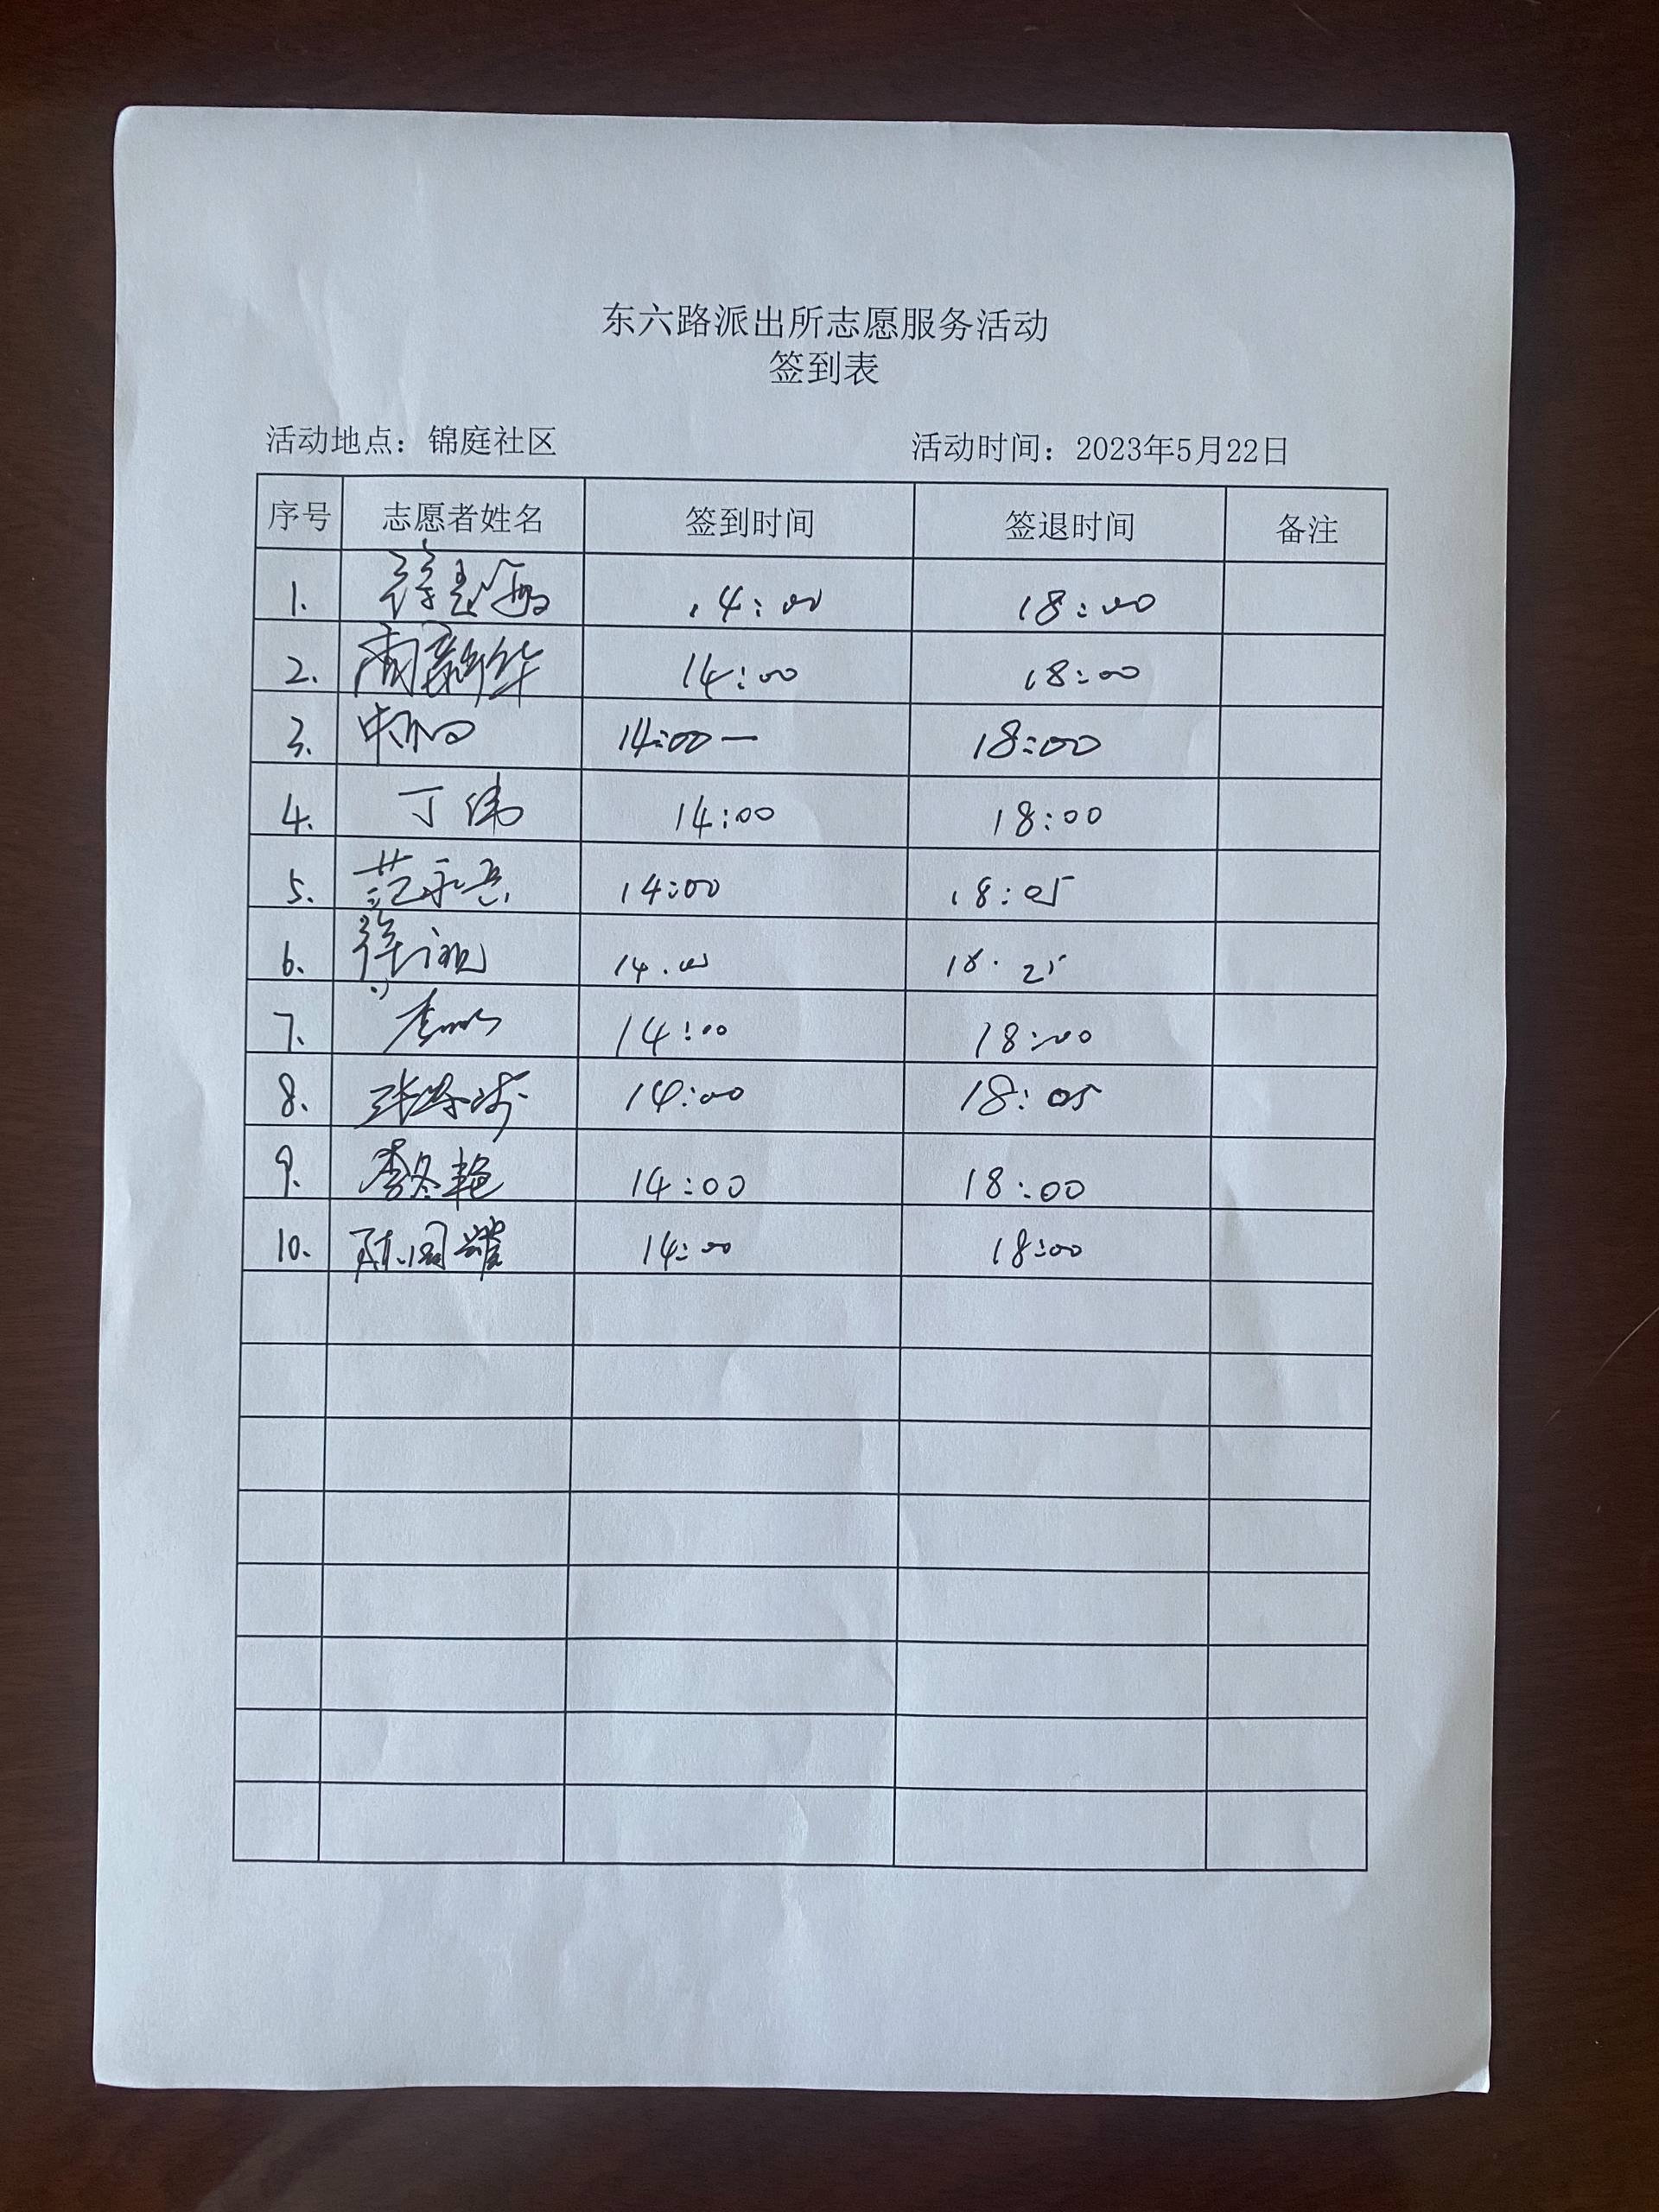 东六路派出所志愿服务活动
签到表
活动地点：锦庭社区 活动时间：2023年5月22日
序号 志愿者姓名 签到时间 签退时间 备注
1. 14:00 18:00
2. 周新华 14:00 18:00
3. 14:00— 18:00
4. 丁伟 14:00 18:00
5. 范永亮 14:00 18:05
6. 14.00 18.25
7. 14:00 18:00
8. 14:00 18:05
9. 李冬艳 14:00 18:00
10. 14:00 18:00